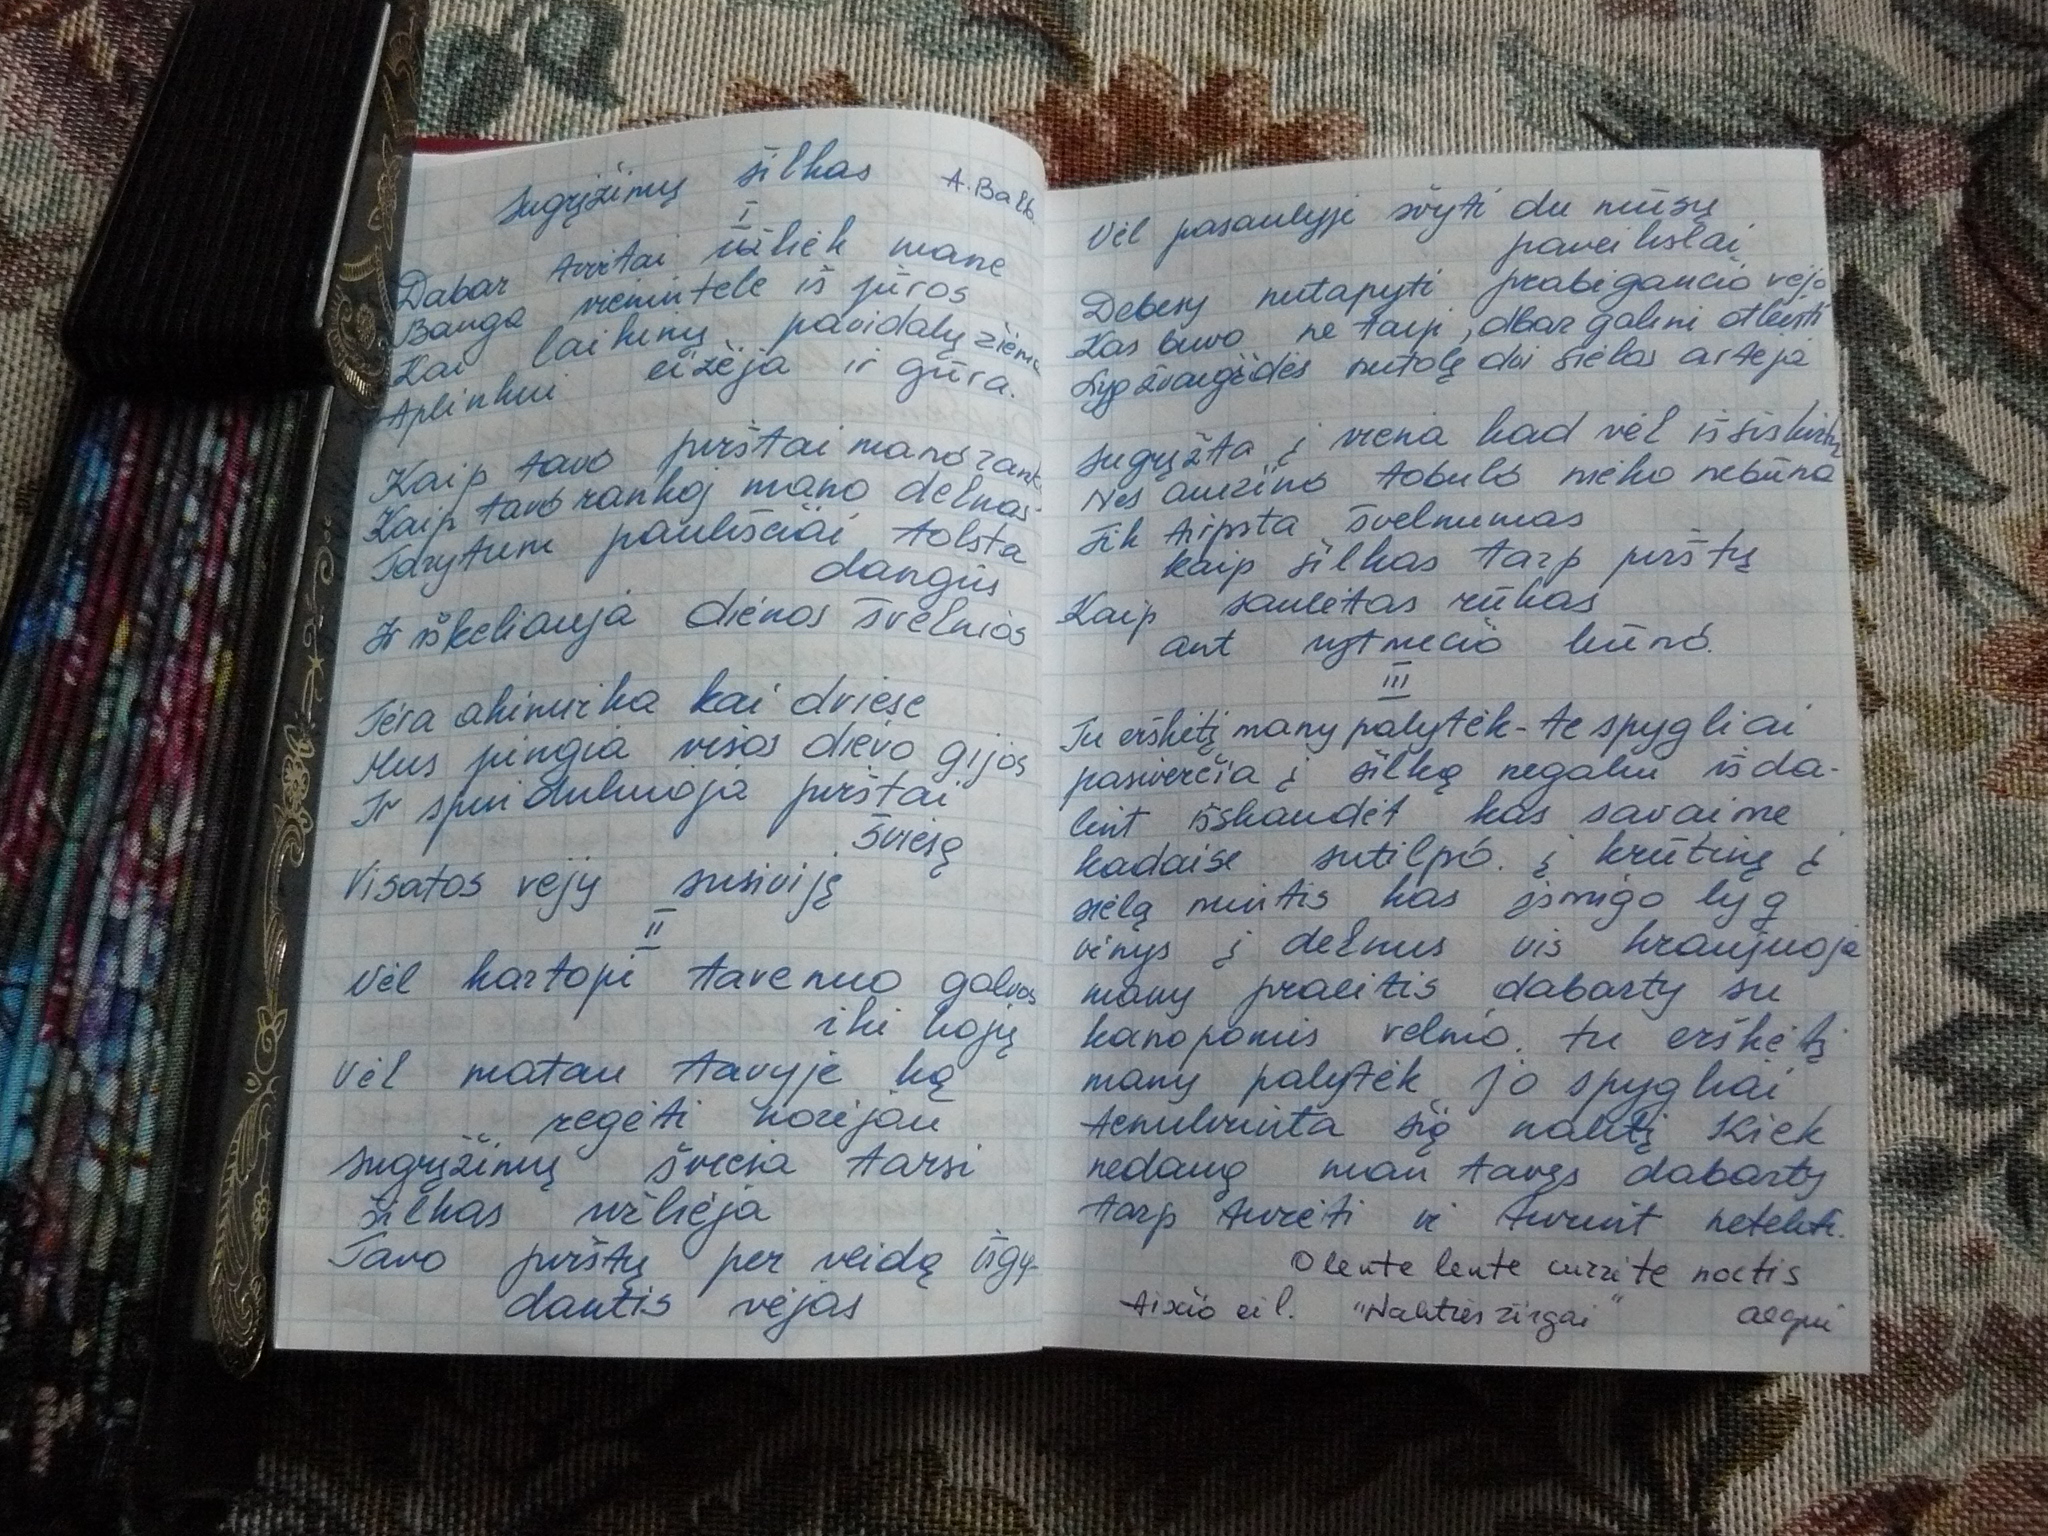 Sugrįžimų šilkas A. Balb.
I
Dabar tvirtai užliek mane
Banga vienintele iš jūros
Kai laikinų pavidalų žiema
Aplinkui eižėja ir gūra.
Kaip tavo pirštai mano rank
Kaip tavo rankoj mano delnas
Tarytum paukščiai tolsta
dangūs
Ir iškeliauja dienos švelnios
Tėra akimirka kai dviese
Mus pingia visos dievo gijos
Ir spinduliuoja pirštai
šviesą
Visatos vėjy susiviję
II
Vėl kartopi tave nuo galvos
iki kojų
Vėl matau tavyje ką
regėti norėjau
Sugrįžimų šviesa tarsi
šilkas užlieja
Tavo pirštų per veidą išgy-
dantis vėjas
Vėl pasaulyje švyti du mūsų
paveikslai
Debesy nutapyti prabėgančio vėjo
Kas buvo ne taip, dbar galini atleisti
Lyg žvaigždės nutolę dvi sielos artėja
Sugrįžta į viena kad vėl išsiskirtų
Nes amžino tobulo nieko nebūna
Tik tirpsta švelnumas
kaip šilkas tarp pirštų
Kaip saulėtas rūkas
ant rytmečio kūno.
III
Tu erškėtį many palytėk - te spygliai
pasiverčia į šilką negaliu išda-
lint išskaudėt kas savaime
kadaise sutilpo. į krūtinę į
sielą mintis kas įsmigo lyg
vinys į delnus vis kraujuoja
many praeitis dabarty su
kanopomis velnio. tu erškėtį
many palytėk jo spygliai
tenulvinta šią naktį Kiek
nedaug man tavęs dabarty
tarp turėti ir turint netekti.
O lente lente currite noctis
Aisčio eil. "Nakties žirgai" aequi